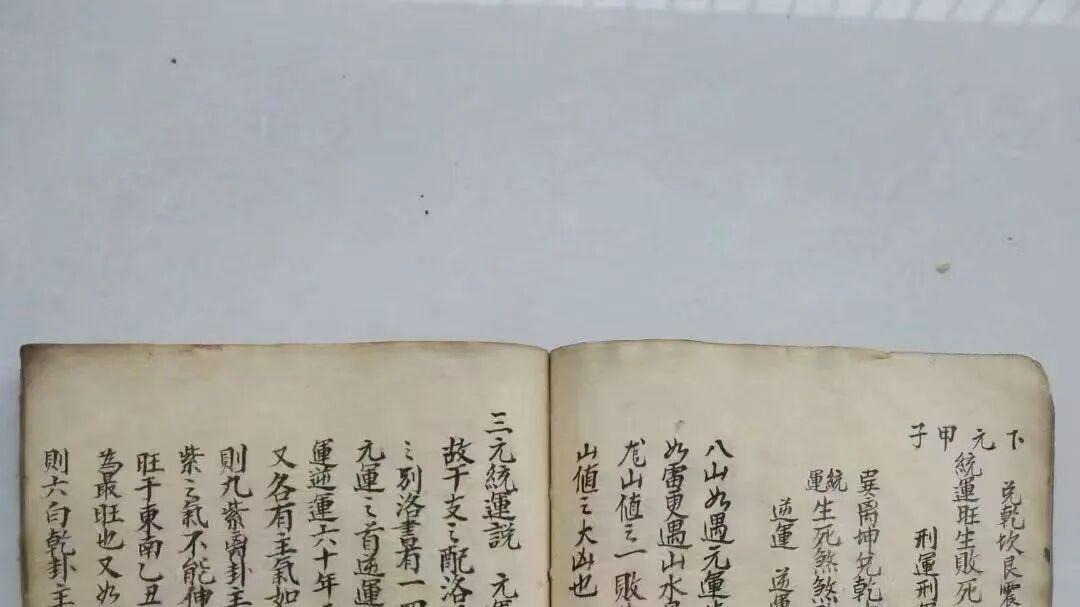 下元甲子
兌乾坎艮震
統運旺生敗死
刑運刑
巽離坤兌乾
統運生死煞煞
逆運 逆運
八山如遇元運
如雷更遇山水
山值之一敗
山值之大凶也
三元統運説 元
故干支之配洛
之别洛書有一四
元運之首逆運
運逆運六十年
又各有主氣如
則九紫离卦主
紫之氣不能伸
旺于東南乙丑
為最旺也又如
則六白乾卦主